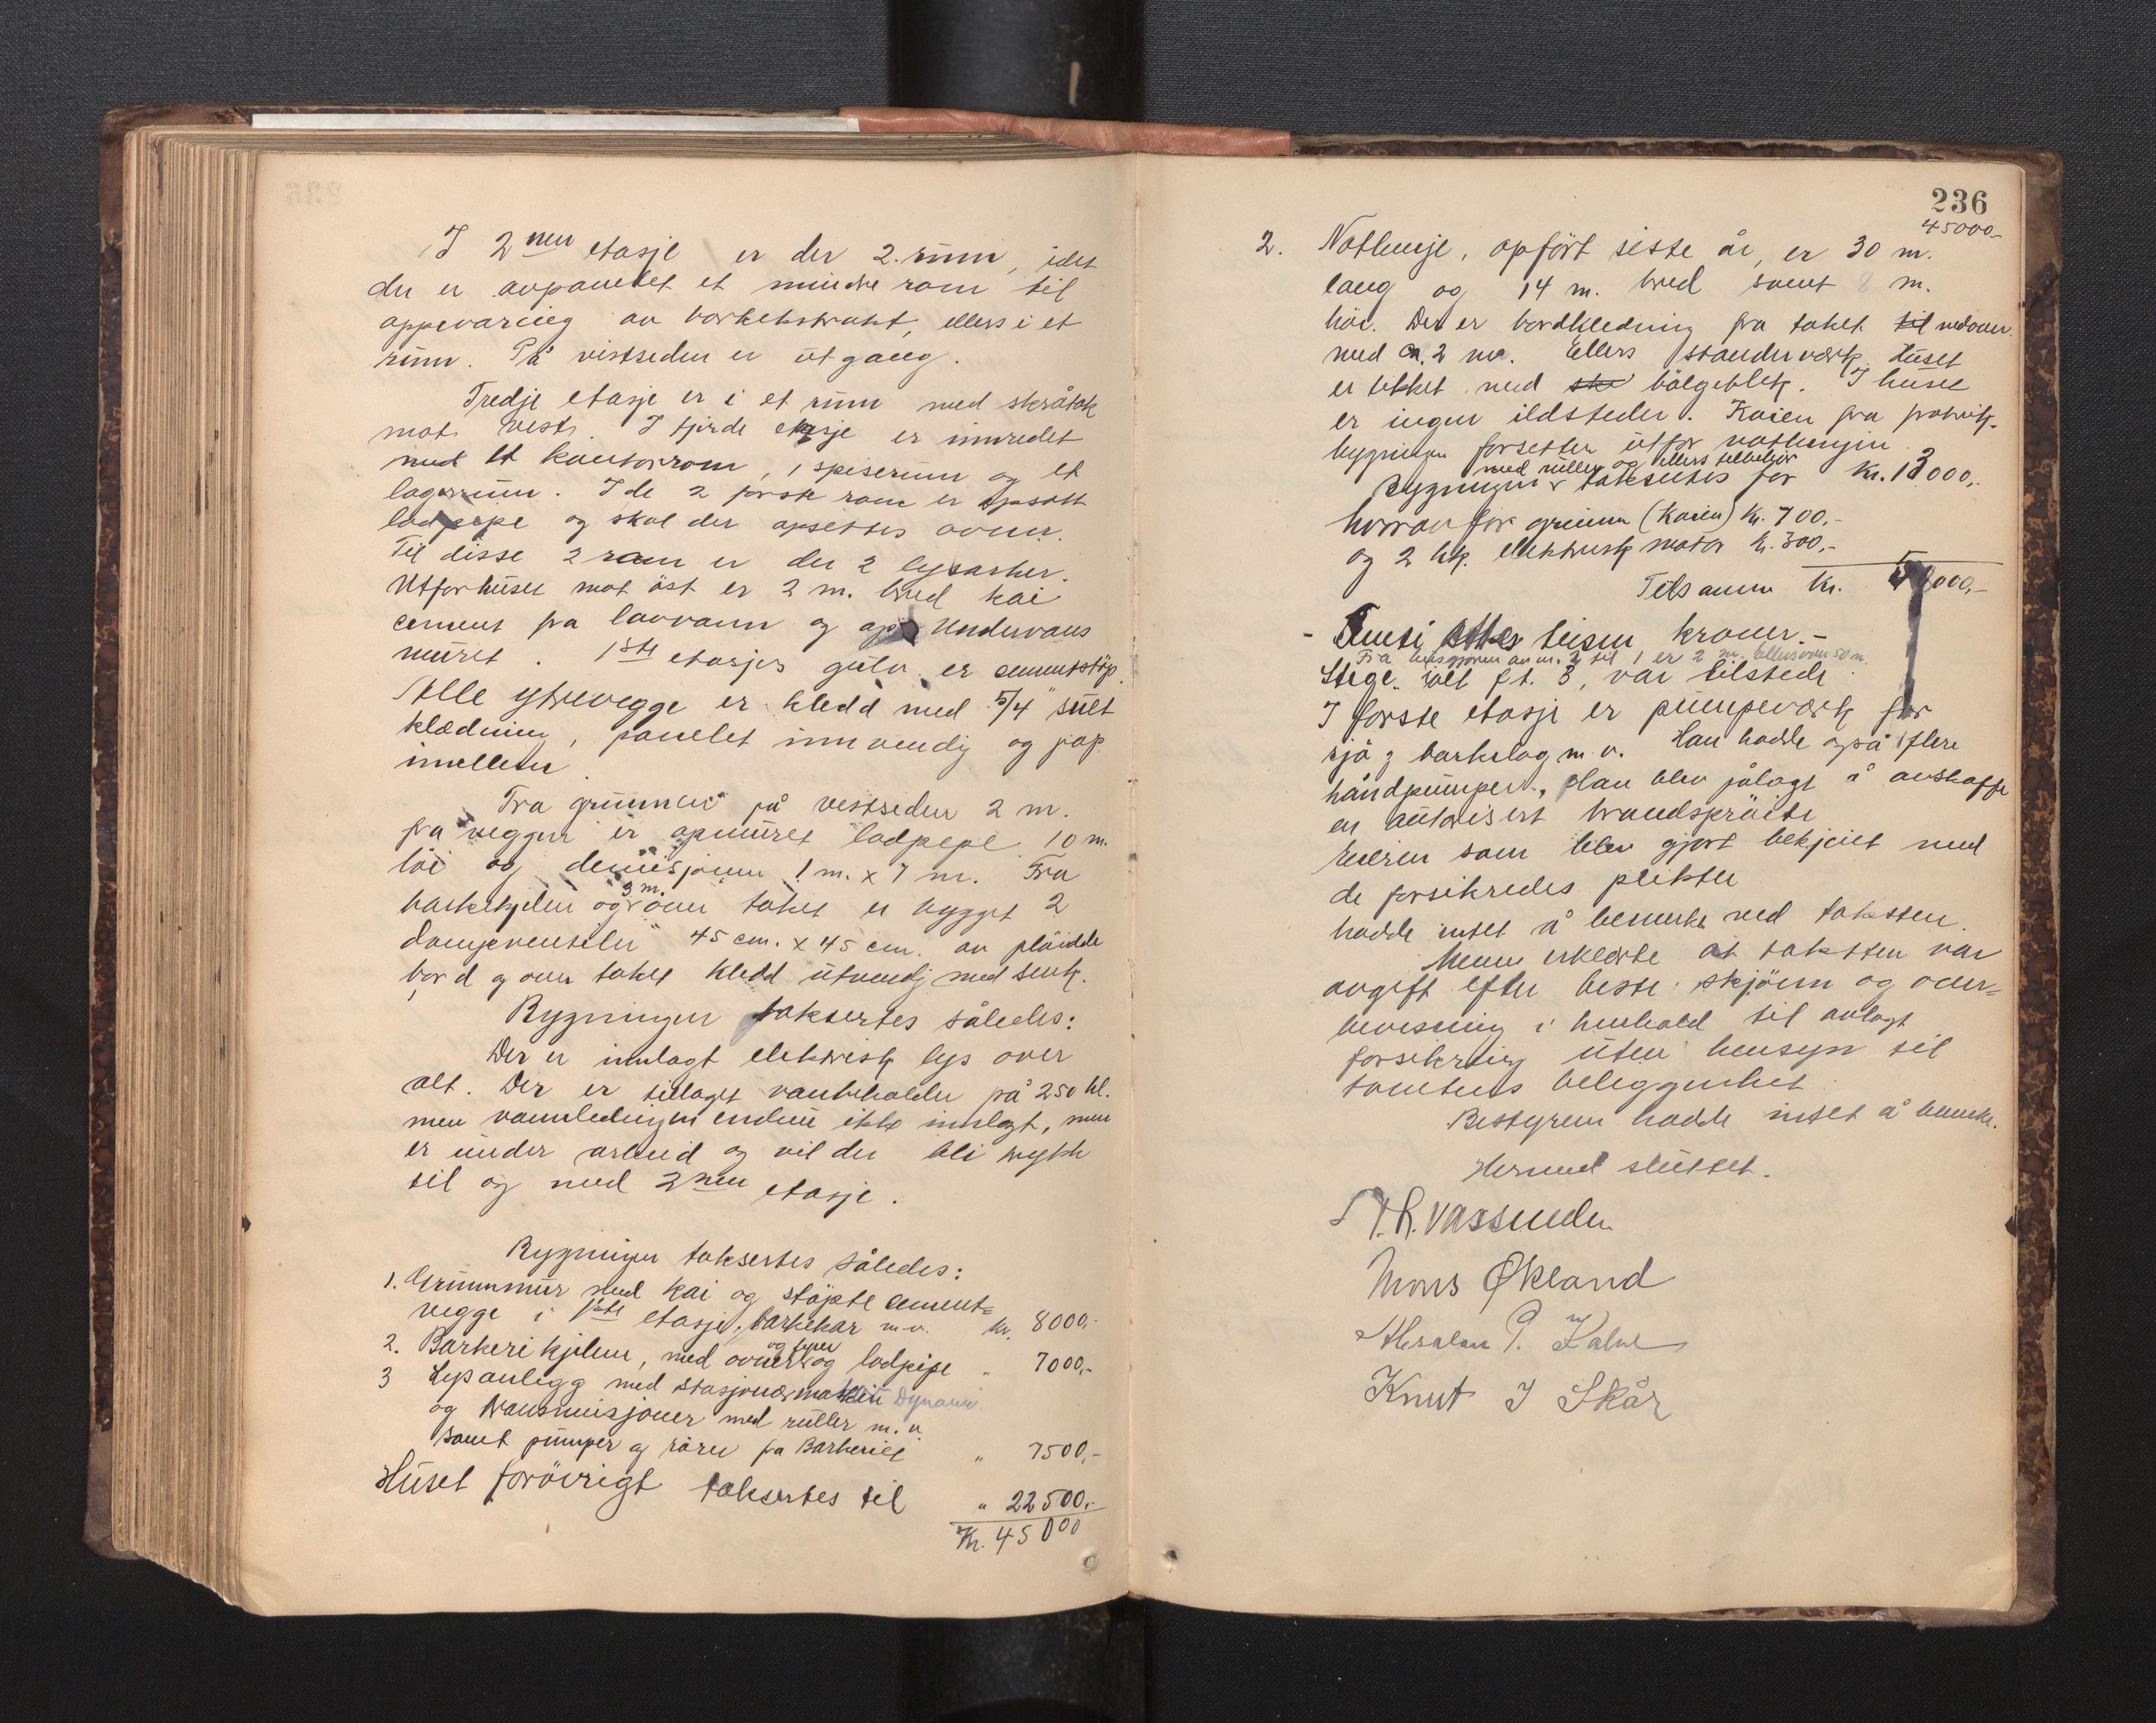 I 2nen etasje er der 2. rum, idet
der er avpanelet et mindre rom til
oppevaring av barkekstrakt, ellers i et
rum. På vestsiden er utgang.
Tredje etasje er i et rum med skråtak
mot vest. I fjerde etasje er innredet
med et kontorrom, 1 spiserum og et
lagerrum. I de 2 første rom er opsatt
lodpipe og skal der opsettes ovner.
Til disse 2 rom er der 2 lysarker.
Utfor huset mot öst er 2 m. bred kai
cement fra lavvann og op. Undervans
muret. 1ste etasjes gulv er cementstöp.
Alle ytrevegge er kledd med 5/4" sult
klædning, panelet innvendig og pap
imellem.
Fra grunnen på vestsiden 2 m.
fra veggen er opmuret lodpipe 10 m.
höi og dimisjonen 1 m. x 7 m. Fra
barkekjelen og 3 m. over taket er bygget 2
dampventiler 45 cm. x 45 cm. av plöidde
bord og over taket kledd utvendig med sink.
Bygningen taksertes således:
Der er innlagt elektrisk lys over
alt. Der er tillaget vannbeholder på 250 hl.
men vannledningen endnu ikke innlagt, men
er under arbeid og vil der bli trykk
til og med 2nen etasje.
Bygningen taksertes således:
1. Grunnmur med kai og stöpte cement=
vegge i 1ste etasje, barkekar m.v. kr. 8000,-
2. Barkeri kjelene, med ovner og fyrer og lodpipe " 7000,-
3 Lysanlegg med stasjonærmaskin Dynamo
og transmisjoner med ruller m.v.
samt pumper og rörer fra Barkeriet " 7500,-
Huset forövrigt taksertes til " 22500,-
Kr. 45000
236
45000-
2. Nothengje, opfört siste år, er 30 m.
lang og 14 m. bred samt 8 m.
höi. Det er bordkledning fra taket til nedover
med ca. 2 m. Ellers stenderverk. Huset
er tekket med bölgeblikk. I huset
er ingen ildsteder. Kaien fra fabrikk-
bygningen forsetter utfor nothengjen.
med ruller og ellers tilbehör
Bygningen taksertes for Kr. 13000,-
hvorav for grunn (Kaien) kr. 700,-
og 2 hk. elektrisk motor kr. 300,-
Tilsammen kr. 58000,-
- Femti otte tusen kroner.-
Fra nr. 2 til 1 er 2 m. ellers over 50 m.
Stige, ialt p.t. 3, var tilstede.
I förste etasje er pumpeverk for
sjö og barkelog m.v. Han hadde også flere
håndpumper. Han blev pålagt å anskaffe
en autorisert brandspröite
Eieren som blev gjort bekjent med
de forsikredes plikter
hadde intet å bemerke ved taksten.
Menn erklærte at taksten var
avgitt efter beste skjönn og over=
bevisning i henhold til avlagt
forsikring uten hensyn til
tomtens beliggenhet.
Bestyreren hadde intet å bemerke.
Hermed sluttet.
Th. Vassenden
Mons Økland
P. Kalve
Knut J Skår